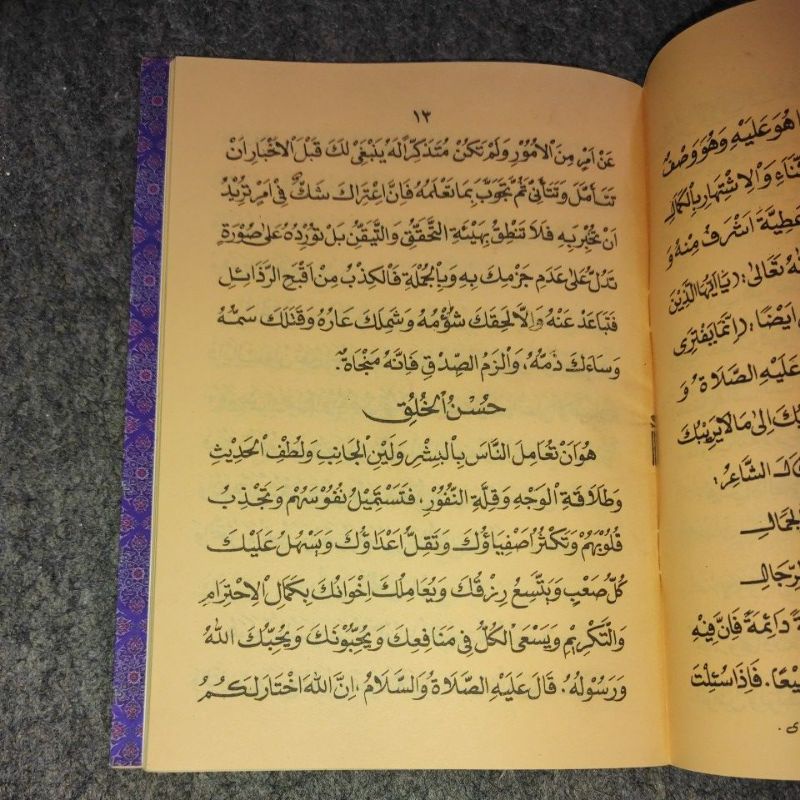 ١٣
عَنْ اَمْرٍ مِنَ الْاُمُوْرِ وَلَمْ تَكُنْ مُتَذَكِّرًا لَهُ يَنْبَغِيْ لَكَ قَبْلَ الْاَخْبَارِ اَنْ
تَتَأَمَّلَ وَتَتَأَنّٰى ثُمَّ تُجَوِّبَ بِمَا تَعْلَمُهُ فَاِنَّ اعْتَرَاكَ شَكٌّ فِيْ اَمْرٍ تُرِيْدُ
اَنْ تُخْبِرَ بِهِ فَلَا تَنْطِقْ بِهَيْئَةِ التَّحَقُّقِ وَالتَّيَقُّنِ بَلْ تُوْرِدُهُ عَلٰى صُوْرَةٍ
تَدُلُّ عَلٰى عَدَمِ جَزْمِكَ بِهِ وَبِالْجُمْلَةِ فَالْكِذْبُ مِنْ اَقْبَحِ الرَّذَائِلِ
فَتَبَاعَدْ عَنْهُ وَاِلَّا لَحِقَكَ شُؤْمُهُ وَشَمِلَكَ عَارُهُ وَقَتَلَكَ سَمُّهُ
وَسَاءَكَ ذَمُّهُ، وَالْزَمُ الصِّدْقِ فَاِنَّهُ مَنْجَاةٌ.
حُسْنُ الْخُلُقِ
هُوَ اَنْ تُعَامِلَ النَّاسَ بِالْبِشْرِ وَلَيْنِ الْجَانِبِ وَلُطْفِ الْحَدِيْثِ
وَطَلَاقَةِ الْوَجْهِ وَقِلَّةِ النُّفُوْرِ. فَتَسْتَمِيْلُ نُفُوْسَهُمْ وَتَجْذِبُ
قُلُوْبَهُمْ وَتَكْثُرُ اَصْفِيَاؤُكَ وَتَقِلُّ اَعْدَاؤُكَ وَيَسْهُلُ عَلَيْكَ
كُلُّ صَعْبٍ وَيَتَّسِعُ رِزْقُكَ وَيُعَامِلُكَ اِخْوَانُكَ بِكَمَالِ الْاِحْتِرَامِ
وَالتَّكْرِيْمِ وَيَسْعَى الْكُلُّ فِيْ مَنَافِعِكَ وَيُحِبُّوْنَكَ وَيُحِبُّكَ اللهُ
وَرَسُوْلُهُ. قَالَ عَلَيْهِ الصَّلَاةُ وَالسَّلَامُ، اِنَّ اللهَ اخْتَارَ لَكُمُ
هُوَ عَلَيْهِ وَهُوَ وَصْفٌ
وَالْاِشْتِهَارِ بِالْكَمَالِ
اَشْرَفُ مِنْهُ وَ
تَعَالٰى: (يَا اَيُّهَا الَّذِيْنَ
اَيْضًا: (اِنَّمَا يَفْتَرِى
عَلَيْهِ الصَّلَاةُ وَ
اِلٰى مَا لَا يَرِيْبُكَ
الشَّاعِرُ:
دَائِمَةً فَاِنَّ فِيْهِ
فَاِذَا سُئِلْتَ